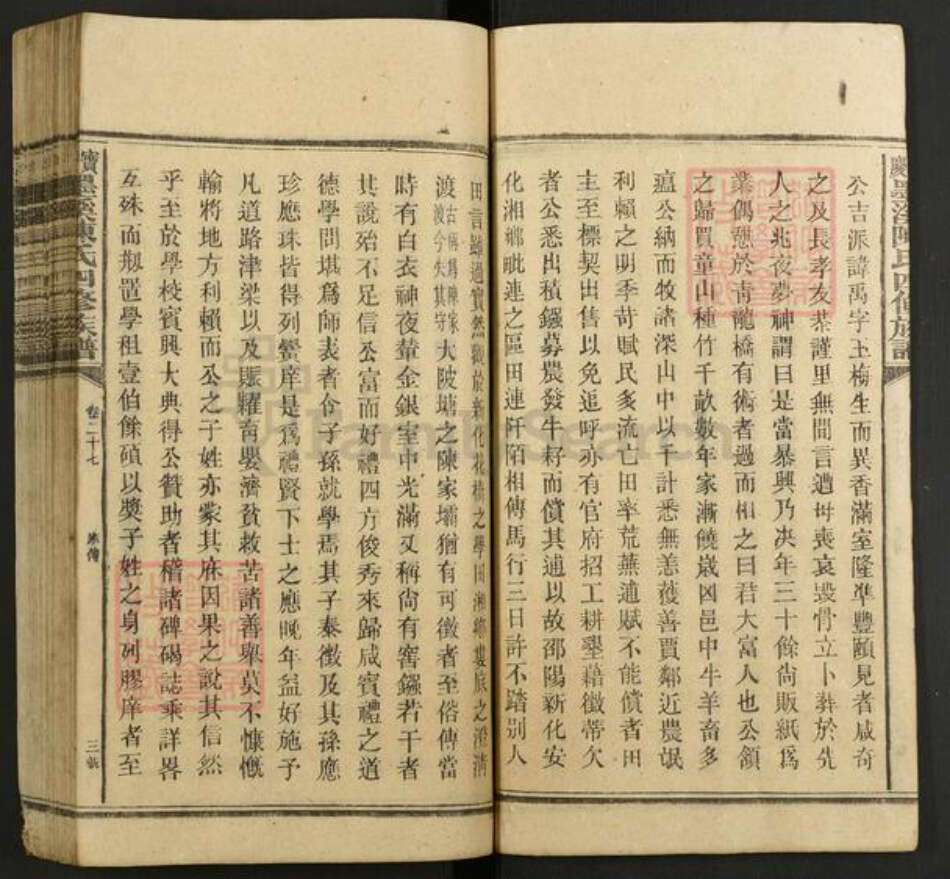 墨溪陳氏四修族譜
公吉派諱禹字玉梅生而異香滿室隆準豐頤見者咸奇
之及長孝友恭謹里無間言遭母喪哀毀骨立卜葬於先
人之兆夜夢神謂曰是當暴興乃決年三十餘尙販紙爲
業偶憩於靑龍橋有術者過而相之曰君大富人也公頷
之歸買童山種竹千畝數年家漸饒歲凶邑中牛羊畜多
瘟公納而牧諸深山中以千計悉無恙獲善賈鄰近農氓
利賴之明季苛賦民多流亡田率荒蕪逋賦不能償者田
主至標契出售以免追呼亦有官府招工耕墾藉徵蒂欠
者公悉出積鏹募農發牛耔而償其逋以故邵陽新化安
化湘鄉毗連之區田連阡陌相傳馬行三日許不踏别人
田言雖過實然徵於新化花橋之學田湘鄉婁底之澄淸
渡古稱爲陳家渡今失其守大陂塘之陳家壩猶有可徵者至俗傳當
時有白衣神夜輦金銀室中光滿又稱尙有窖鏹若干者
其說殆不足信公富而好禮四方俊秀來歸咸賓禮之道
德學問堪爲師表者令子孫就學焉其子泰徵及其孫應
珍應珠皆得列黌庠是爲禮賢下士之應晚年益好施予
凡道路津梁以及賑糶育嬰濟貧救苦諸善舉莫不慷慨
輸將地方利賴而公之子姓亦蒙其庥因果之說其信然
乎至於學校賓興大典得公贊助者稽諸碑碣誌乘詳畧
互殊而剏置學租壹伯餘碩以奬子姓之身列膠庠者至
寶墨溪陳氏四修族譜
卷二十七
三